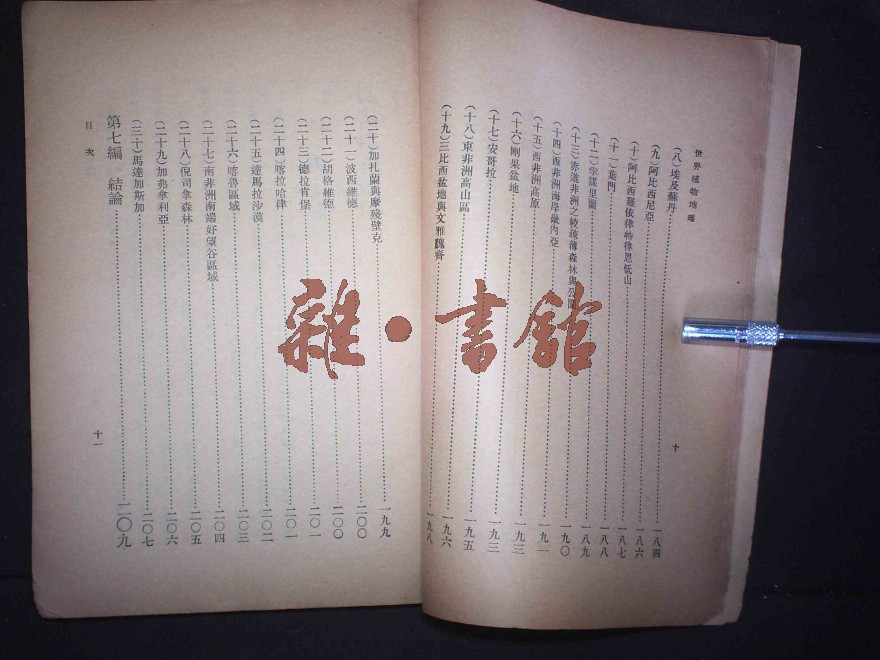 世界植物地理
十
（八）埃及蘇丹……一八四
（九）阿比西尼亞……一八六
（十）阿比西羅依律特律恩低山……一八七
（十一）葉門……一八八
（十二）……一八九
（十三）赤道非洲之綾疏薄森林與公園……一九〇
（十四）西非洲海岸畿內亞……一九一
（十五）西非洲高原……一九三
（十六）剛果盆地……一九三
（十七）安哥拉……一九五
（十八）東非洲高山區……一九六
（十九）三比西盆地與文雅巍齊……一九八
（二十）加扎蘭與摩殘壁克……一九九
（二十一）波西維德……二〇〇
（二十二）胡格維德……二〇〇
（二十三）德拉肯堡……二〇一
（二十四）喀拉哈律……二〇一
（二十五）達馬拉沙漠……二〇二
（二十六）喀魯區域……二〇三
（二十七）南非洲南端好望谷區域……二〇四
（二十八）倪司拿森林……二〇五
（二十九）加弗拿利亞……二〇六
（三十）馬達加斯加……二〇七
第七編　結論……二〇九
目次
十一
雜·書館